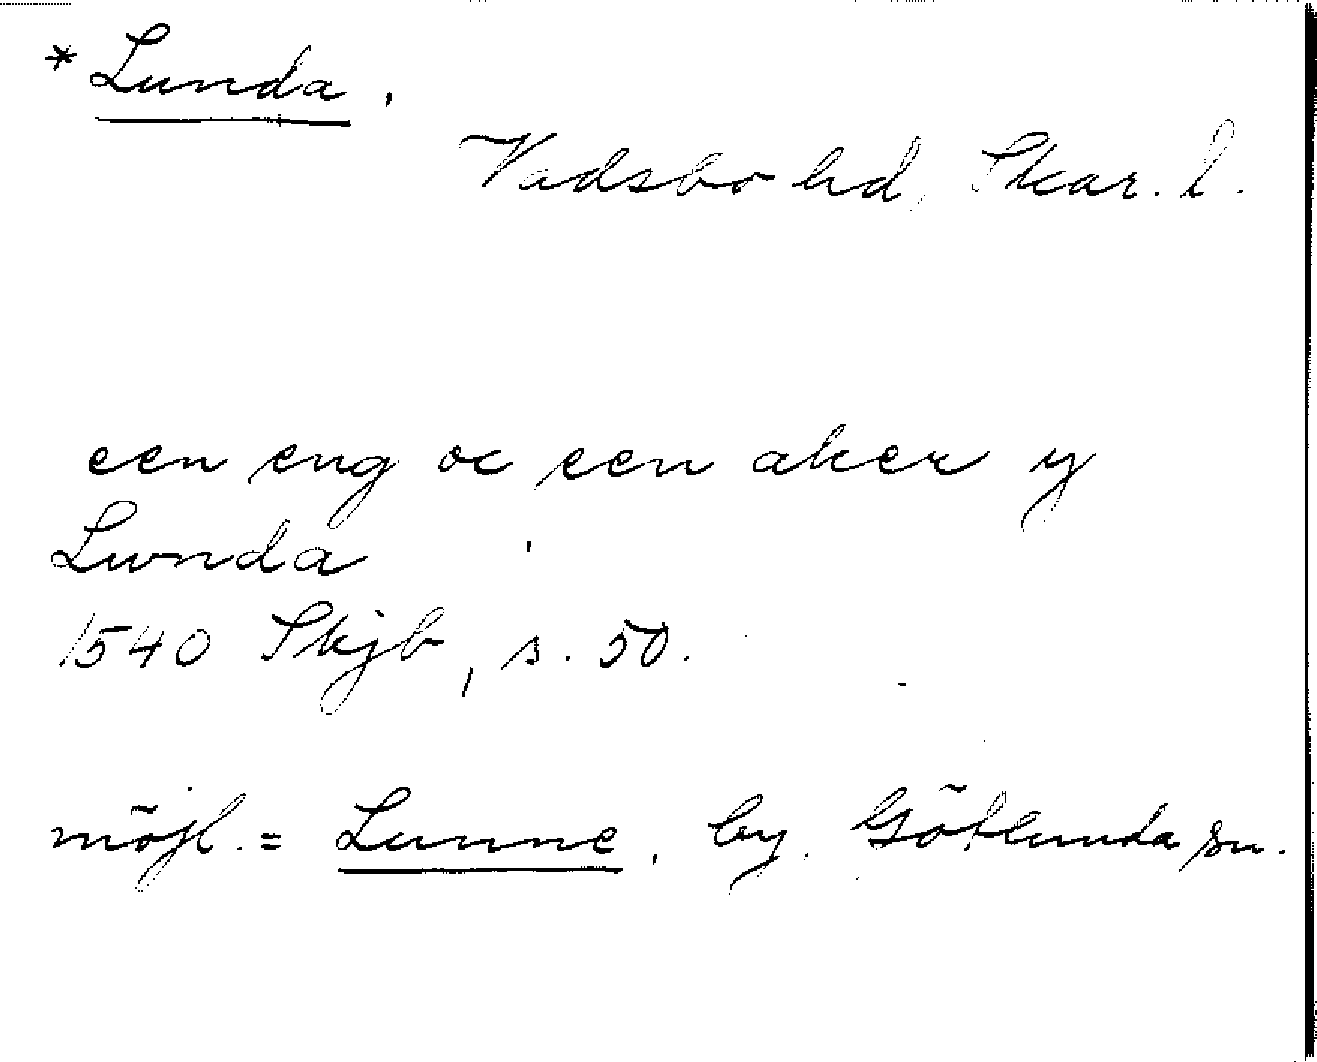 * Lunda,
Vadsbo hd, Skar. l.
een eng oc een aker y
Lwnda
1540 Skjb, s. 50.
möjl. = Lunne, by. Götlunda sn.